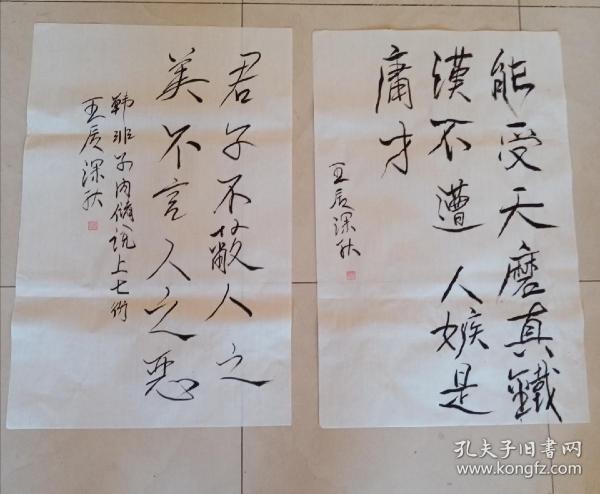 能受天磨真鐵
漢不遭人嫉是
庸才
壬辰深秋
君子不蔽人之
美不言人之惡
韩非子内储说上七術
壬辰深秋
孔夫子旧書网
www.kongfz.com